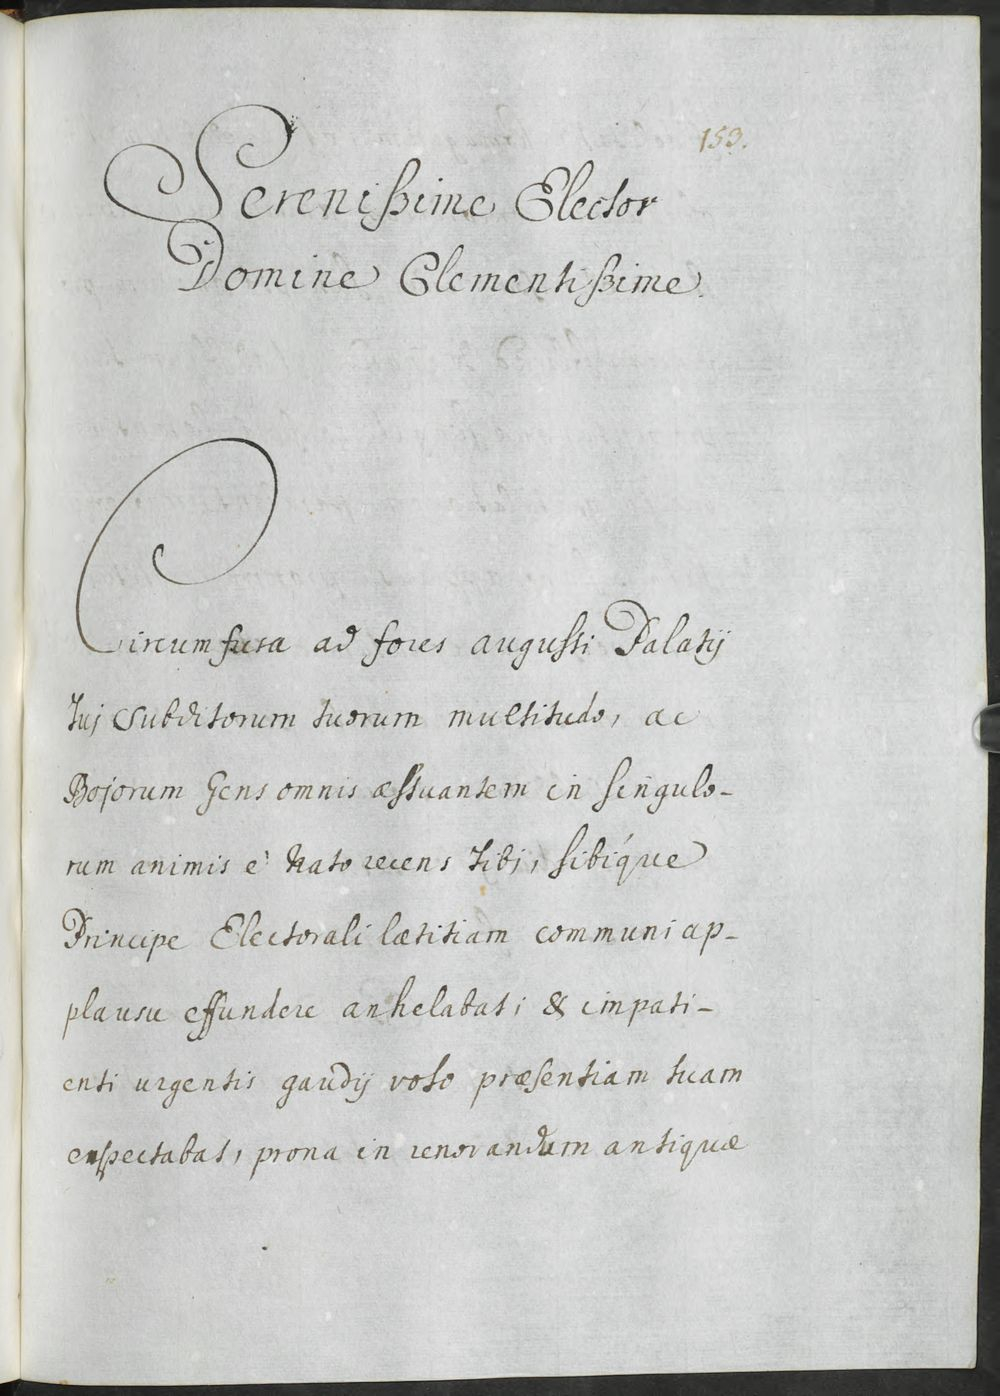 153.
Serenißime Elector
Domine Clementißime.
Circumfusa ad fores augusti Palatij
tuj Subditorum tuorum multitudo, ac
Bojorum Gens omnis æstuantem in singulo-
rum animis è Nato recens tibj, sibíque
Principe Electorali lætitiam communi ap-
plausu effundere anhelabat; & impati-
enti urgentis gaudij voto præsentiam tuam
expectabat, prona in renovandum antiquæ